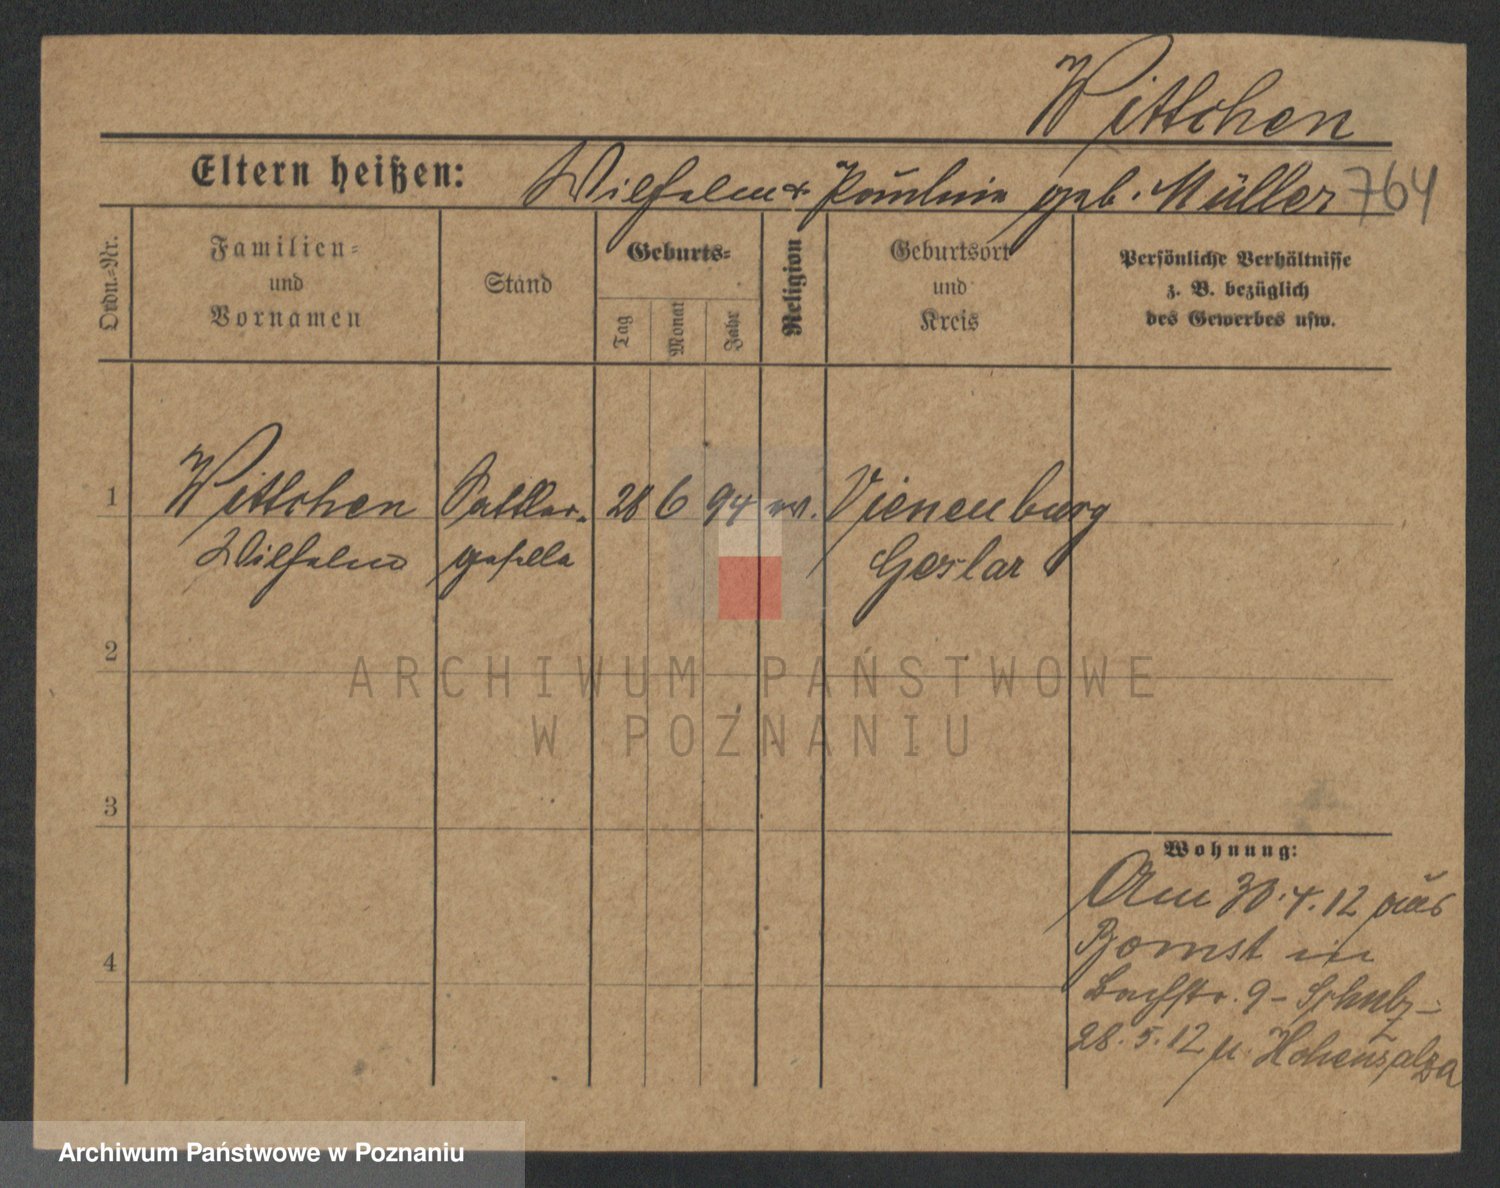 Wittchen
Eltern heißen: Wilhelm u. Pauline geb. Müller 764
Ordn.-Nr.
Familien-
und
Vornamen
Stand
Geburts-
Tag
Monat
Jahr
Religion
Geburtsort
und
Kreis
Persönliche Verhältnisse
z. B. bezüglich
des Gewerbes usw.
1 Wittchen Sattler- 28 6 94 ev. Vienenburg
Wilhelm geselle Goslar
2
3
4
ARCHIWUM PAŃSTWOWE
W POZNANIU
Wohnung:
Am 30.4.12 aus
Bomst in
Bachstr. 9 - Schulz -
28.5.12 n. Hohensalza
Archiwum Państwowe w Poznaniu